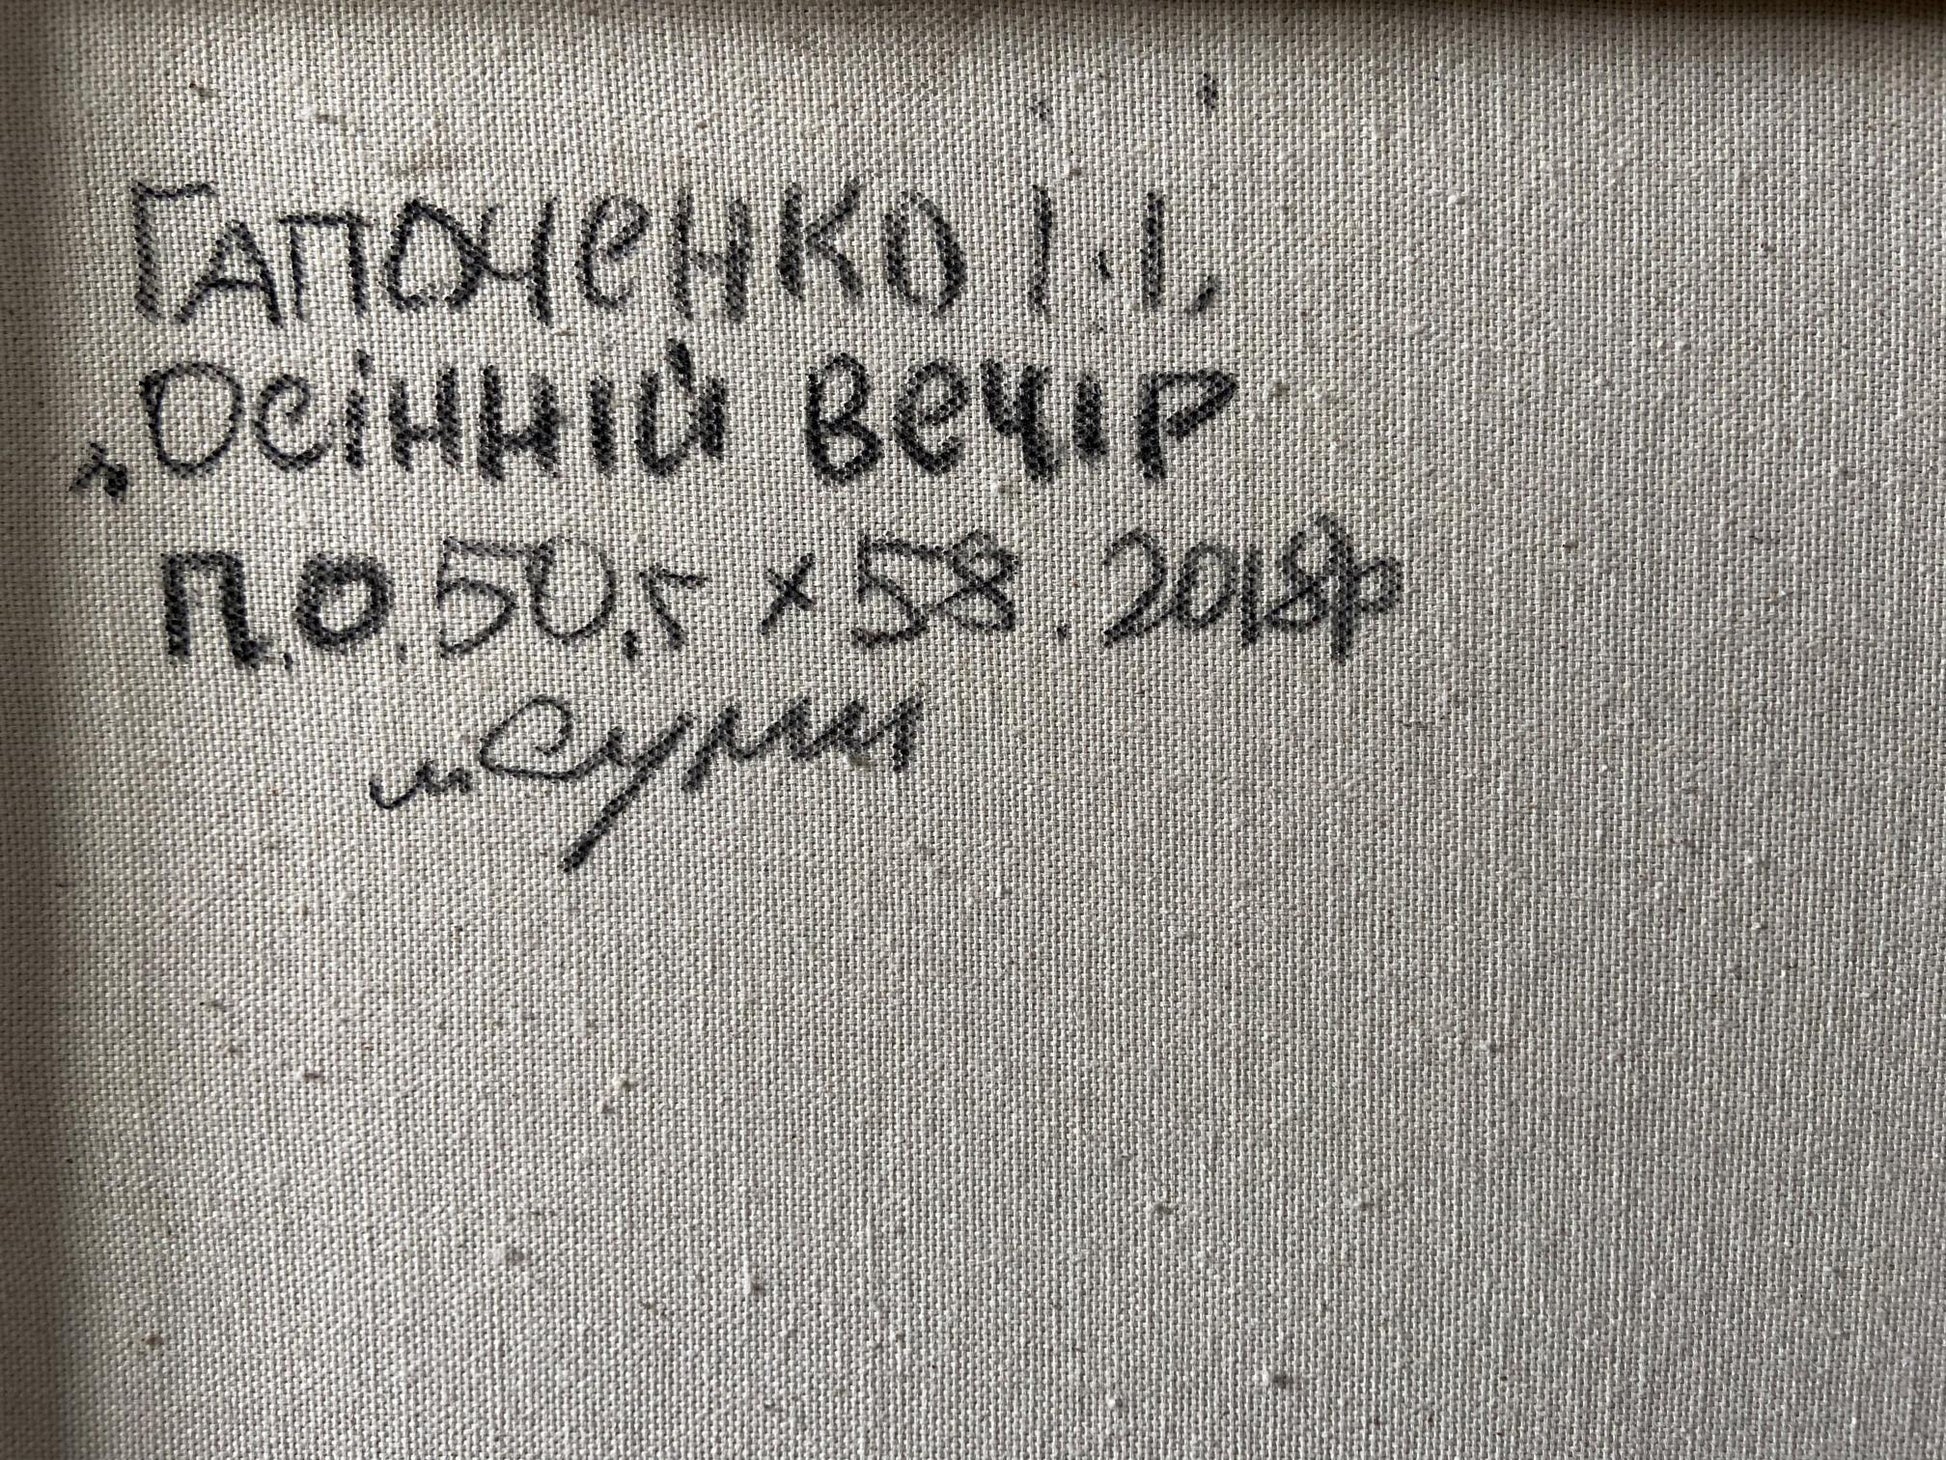 Гапоченко І.І.
„Осінній вечір
П.О. 50,5 x 58. 2018р
м Суми